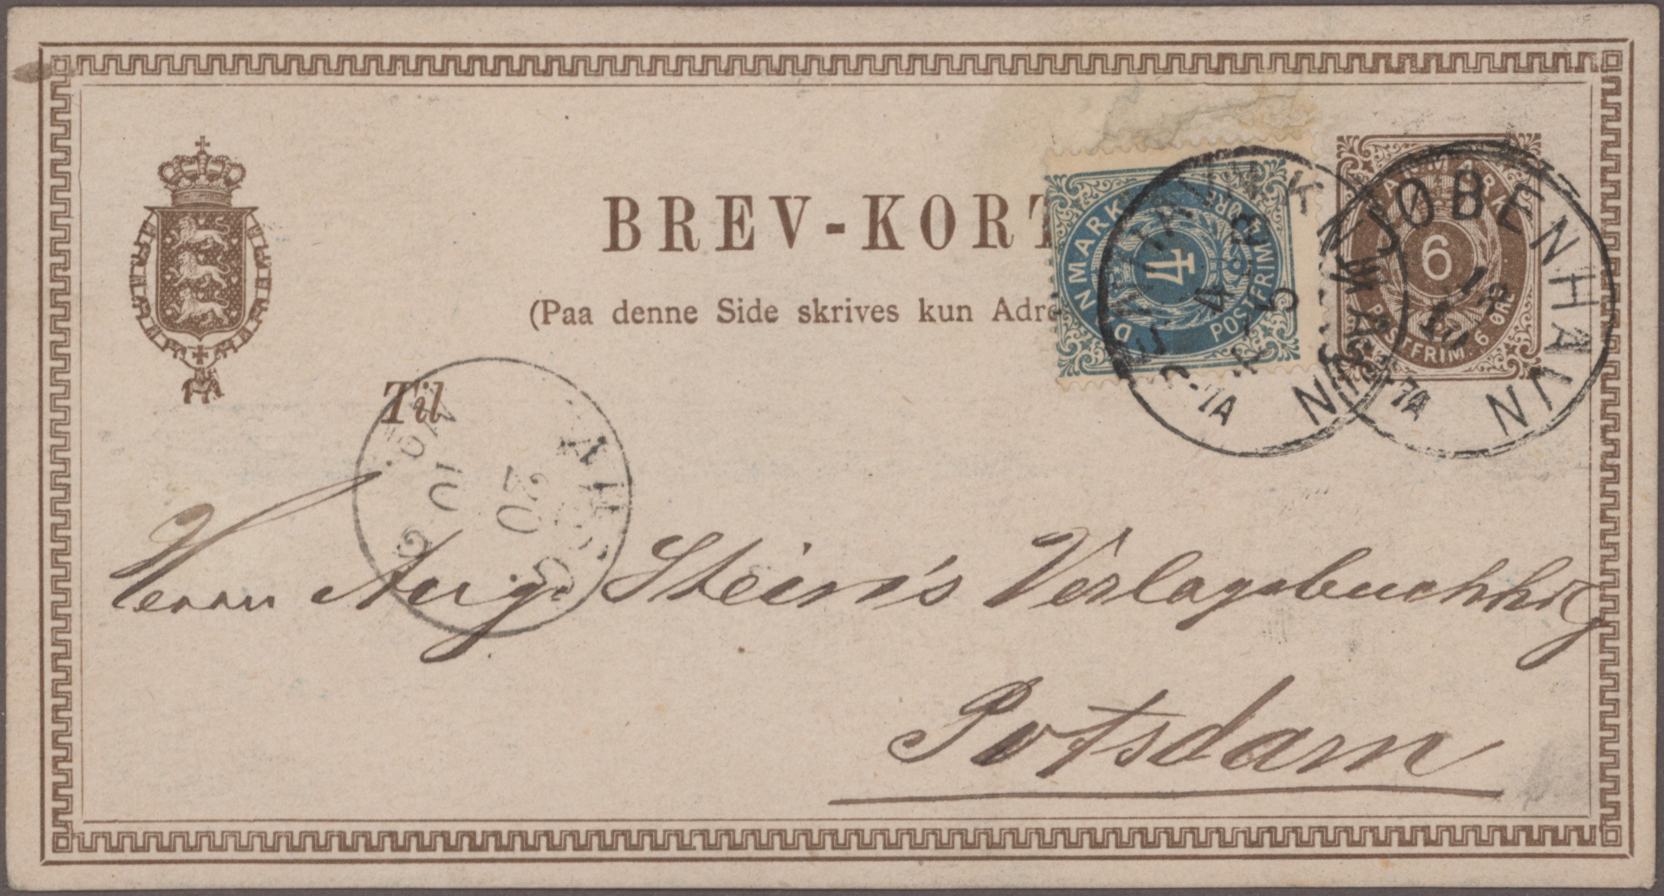 BREV-KORT
(Paa denne Side skrives kun Adre
DANMARK
4
POSTFRIM
ØRE
DANMARK
6
POSTFRIM. 6 ØRE
KJØBENHAVN
KJØBENHAVN
Til
Herrn Aug. Stein's Verlagsbuchhdlg
Potsdam